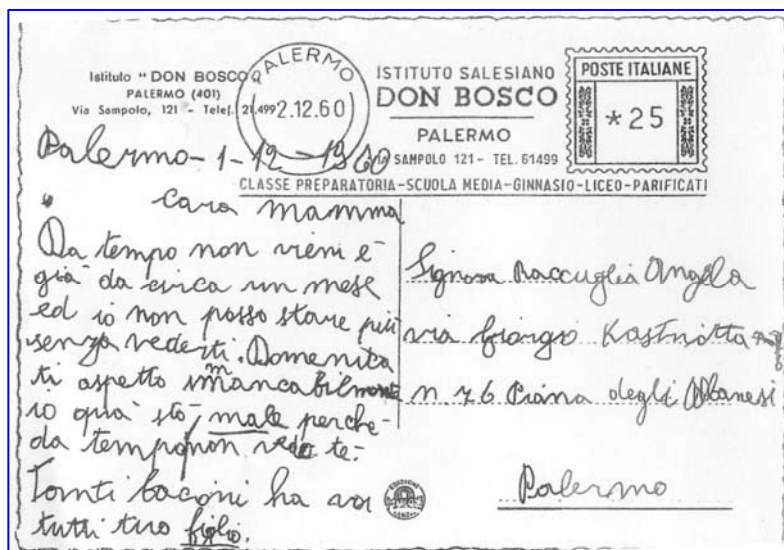 Istituto "DON BOSCO"
PALERMO (401)
Via Sampolo, 121 - Telef. 21.499
PALERMO
2.12.60
ISTITUTO SALESIANO
DON BOSCO
PALERMO
VIA SAMPOLO 121 - TEL. 61499
CLASSE PREPARATORIA-SCUOLA MEDIA-GINNASIO-LICEO-PARIFICATI
POSTE ITALIANE
*25
Palermo - 1 - 12 - 1960
Cara mamma
Da tempo non vieni è
già da circa un mese
ed io non posso stare più
senza vederti. Domenica
ti aspetto immancabilmente
io quà stò male perche
da tempo non vedo te.
Tanti bacioni ha voi
tutti tuo figlio.
Signora Raccuglia Angela
via Giorgio Kastriotta
n. 76 Piana degli Albanesi
Palermo
EDIZIONE